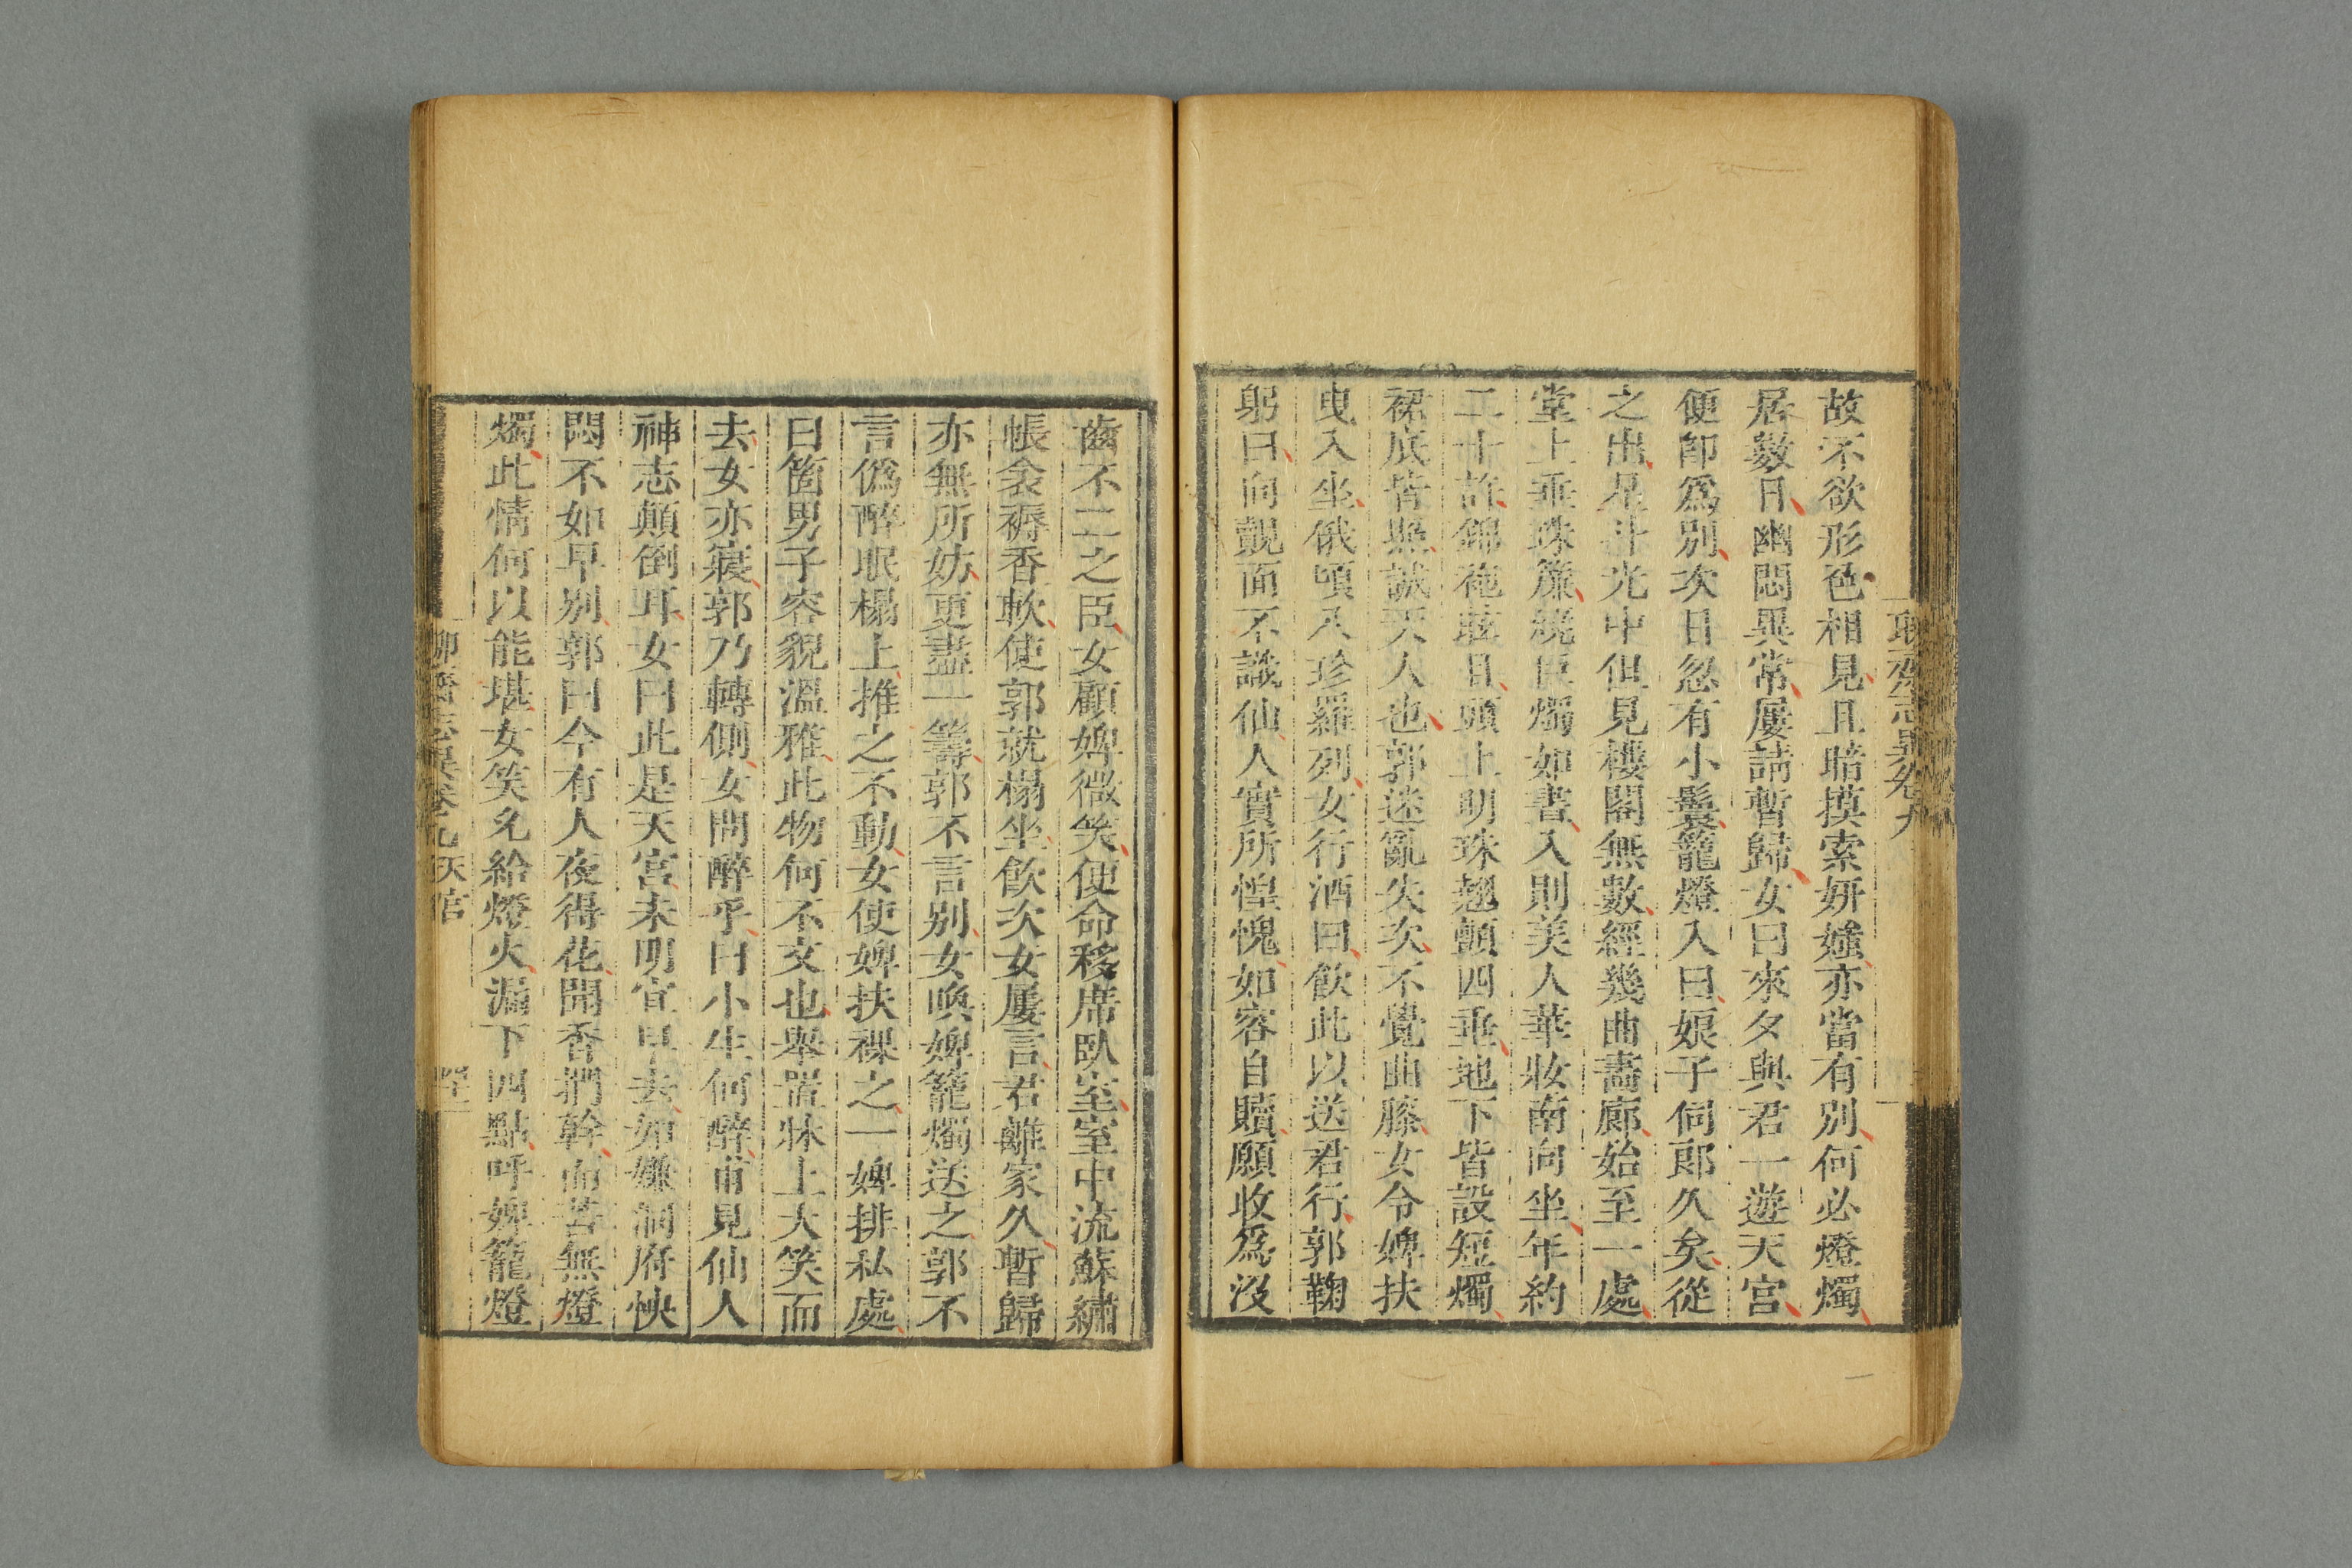 聊齋志異卷九
故不欲形色相見且暗摸索妍媸亦當有別何必燈燭
居數日幽悶異常屢請暫歸女曰來夕與君一遊天宮
便卽爲別次日忽有小鬟籠燈入曰娘子伺郎久矣從
之出星斗光中但見樓閣無數經幾曲畵廊始至一處
堂上垂珠簾燒巨燭如晝入則美人華妝南向坐年約
二十許錦袍眩目頭上明珠翹顫四垂地下皆設短燭
裙底皆照誠天人也郭迷亂失次不覺曲膝女令婢扶
曳入坐俄頃八珍羅列女行酒曰飮此以送君行郭鞠
躬曰向覿面不識仙人實所惶愧如容自贖願收爲沒
齒不二之臣女顧婢微笑便命移席臥室室中流蘇繡
帳衾褥香軟使郭就榻坐飮次女屢言君離家久暫歸
亦無所妨更盡一籌郭不言别女喚婢籠燭送之郭不
言僞醉眠榻上推之不動女使婢扶裸之一婢排私處
曰箇男子容貌溫雅此物何不文也舉置牀上大笑而
去女亦寢郭乃轉側女問醉乎曰小生何醉甫見仙人
神志顛倒耳女曰此是天宮未明宜早去如嫌洞府怏
悶不如早别郭曰今有人夜得花聞香捫幹而苦無燈
燭此情何以能堪女笑允給燈火漏下四點呼婢籠燈
聊齋志異卷九 天宮